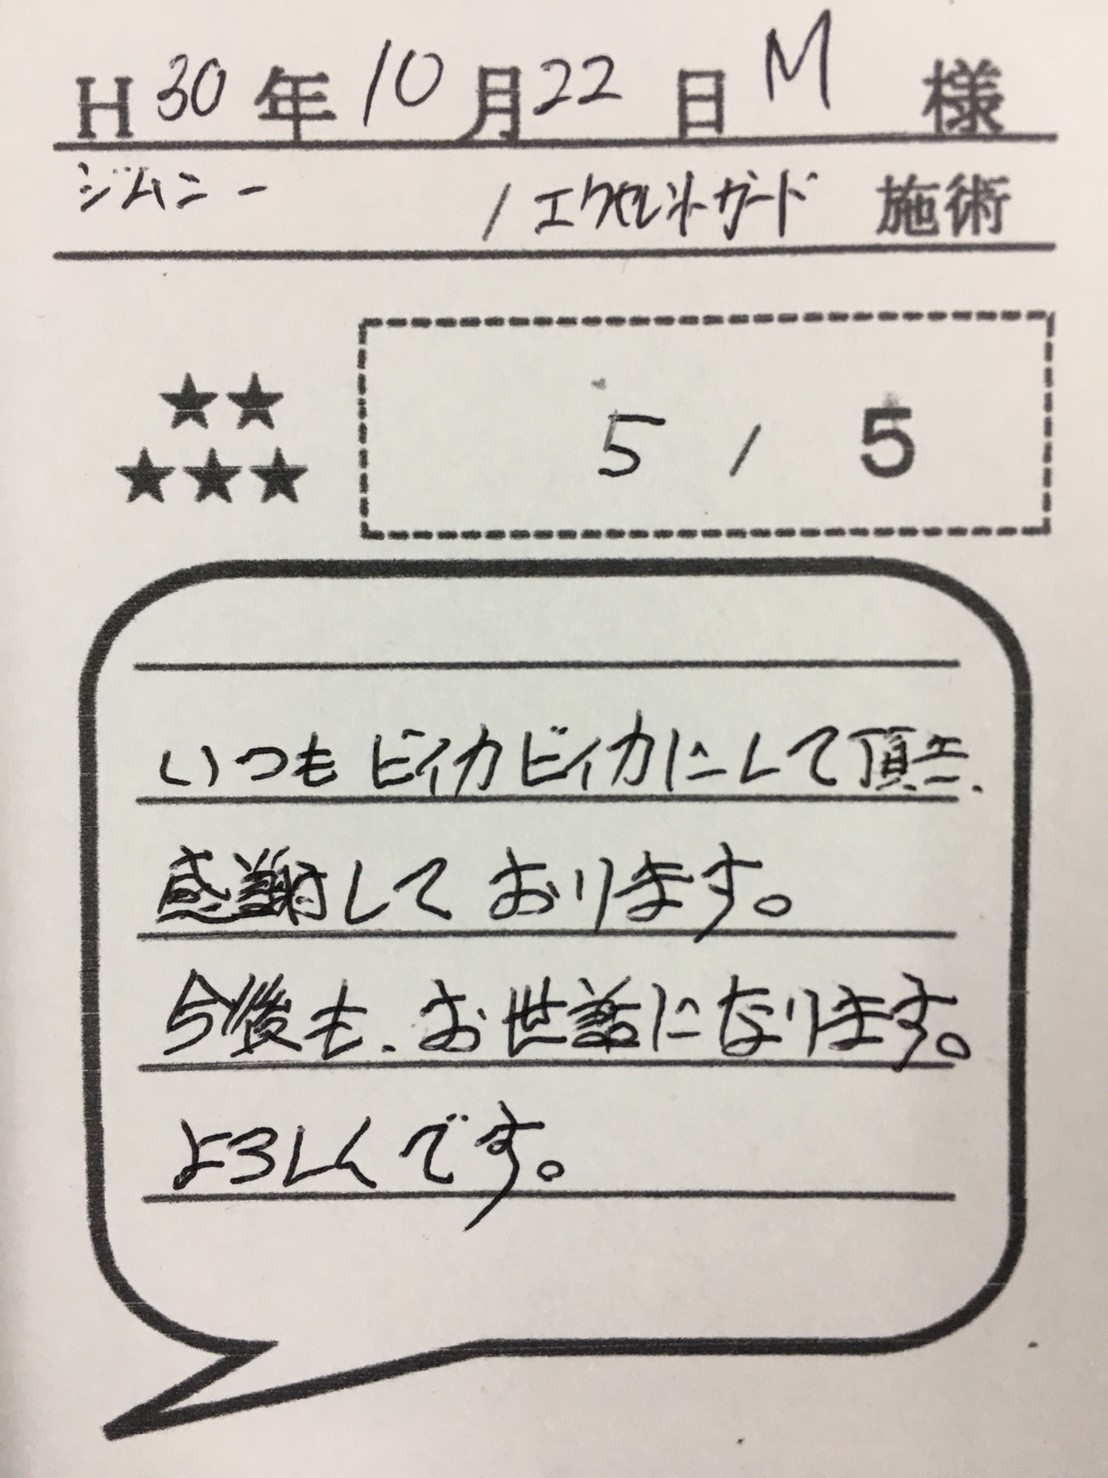 H30年10月22日 M 様
ジムニー / エクセレントガード 施術
★★
★★★
5 / 5
いつもピィカピィカにして頂き、
感謝しております。
今後も、お世話になります。
よろしくです。